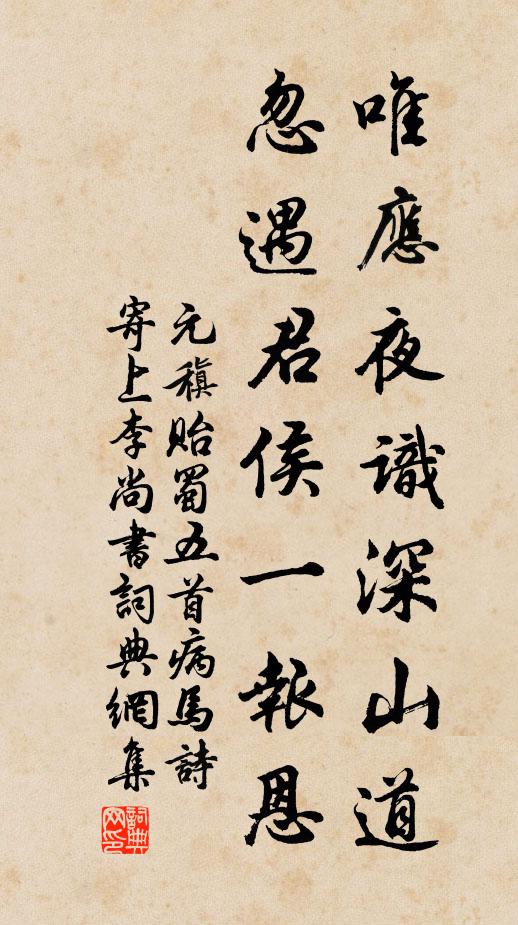 唯應夜識深山道
忽遇君侯一報恩
元稹貽蜀五首病馬詩
寄上李尚書詞典網集
詞典网印